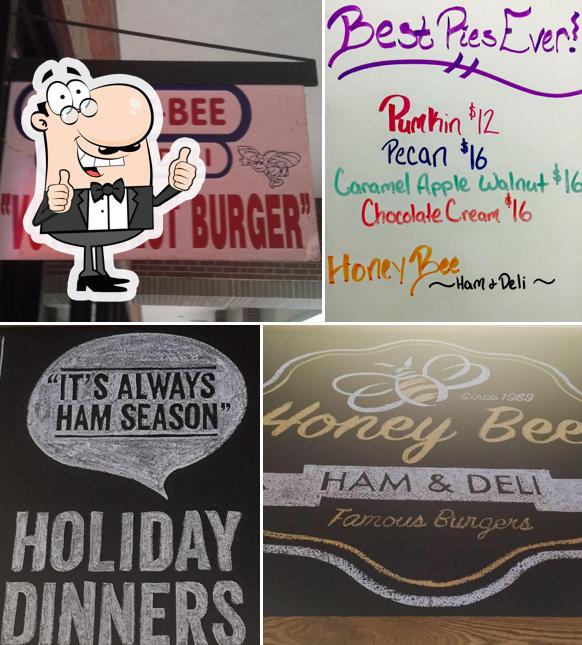 BEE
I
"V
T BURGER"
Best Pies Ever!
Pumkin $12
Pecan $16
Caramel Apple Walnut $16
Chocolate Cream $16
Honey Bee
~Ham & Deli ~
"IT'S ALWAYS
HAM SEASON"
HOLIDAY
DINNERS
Since 1989
Honey Bee
HAM & DELI
Famous Burgers